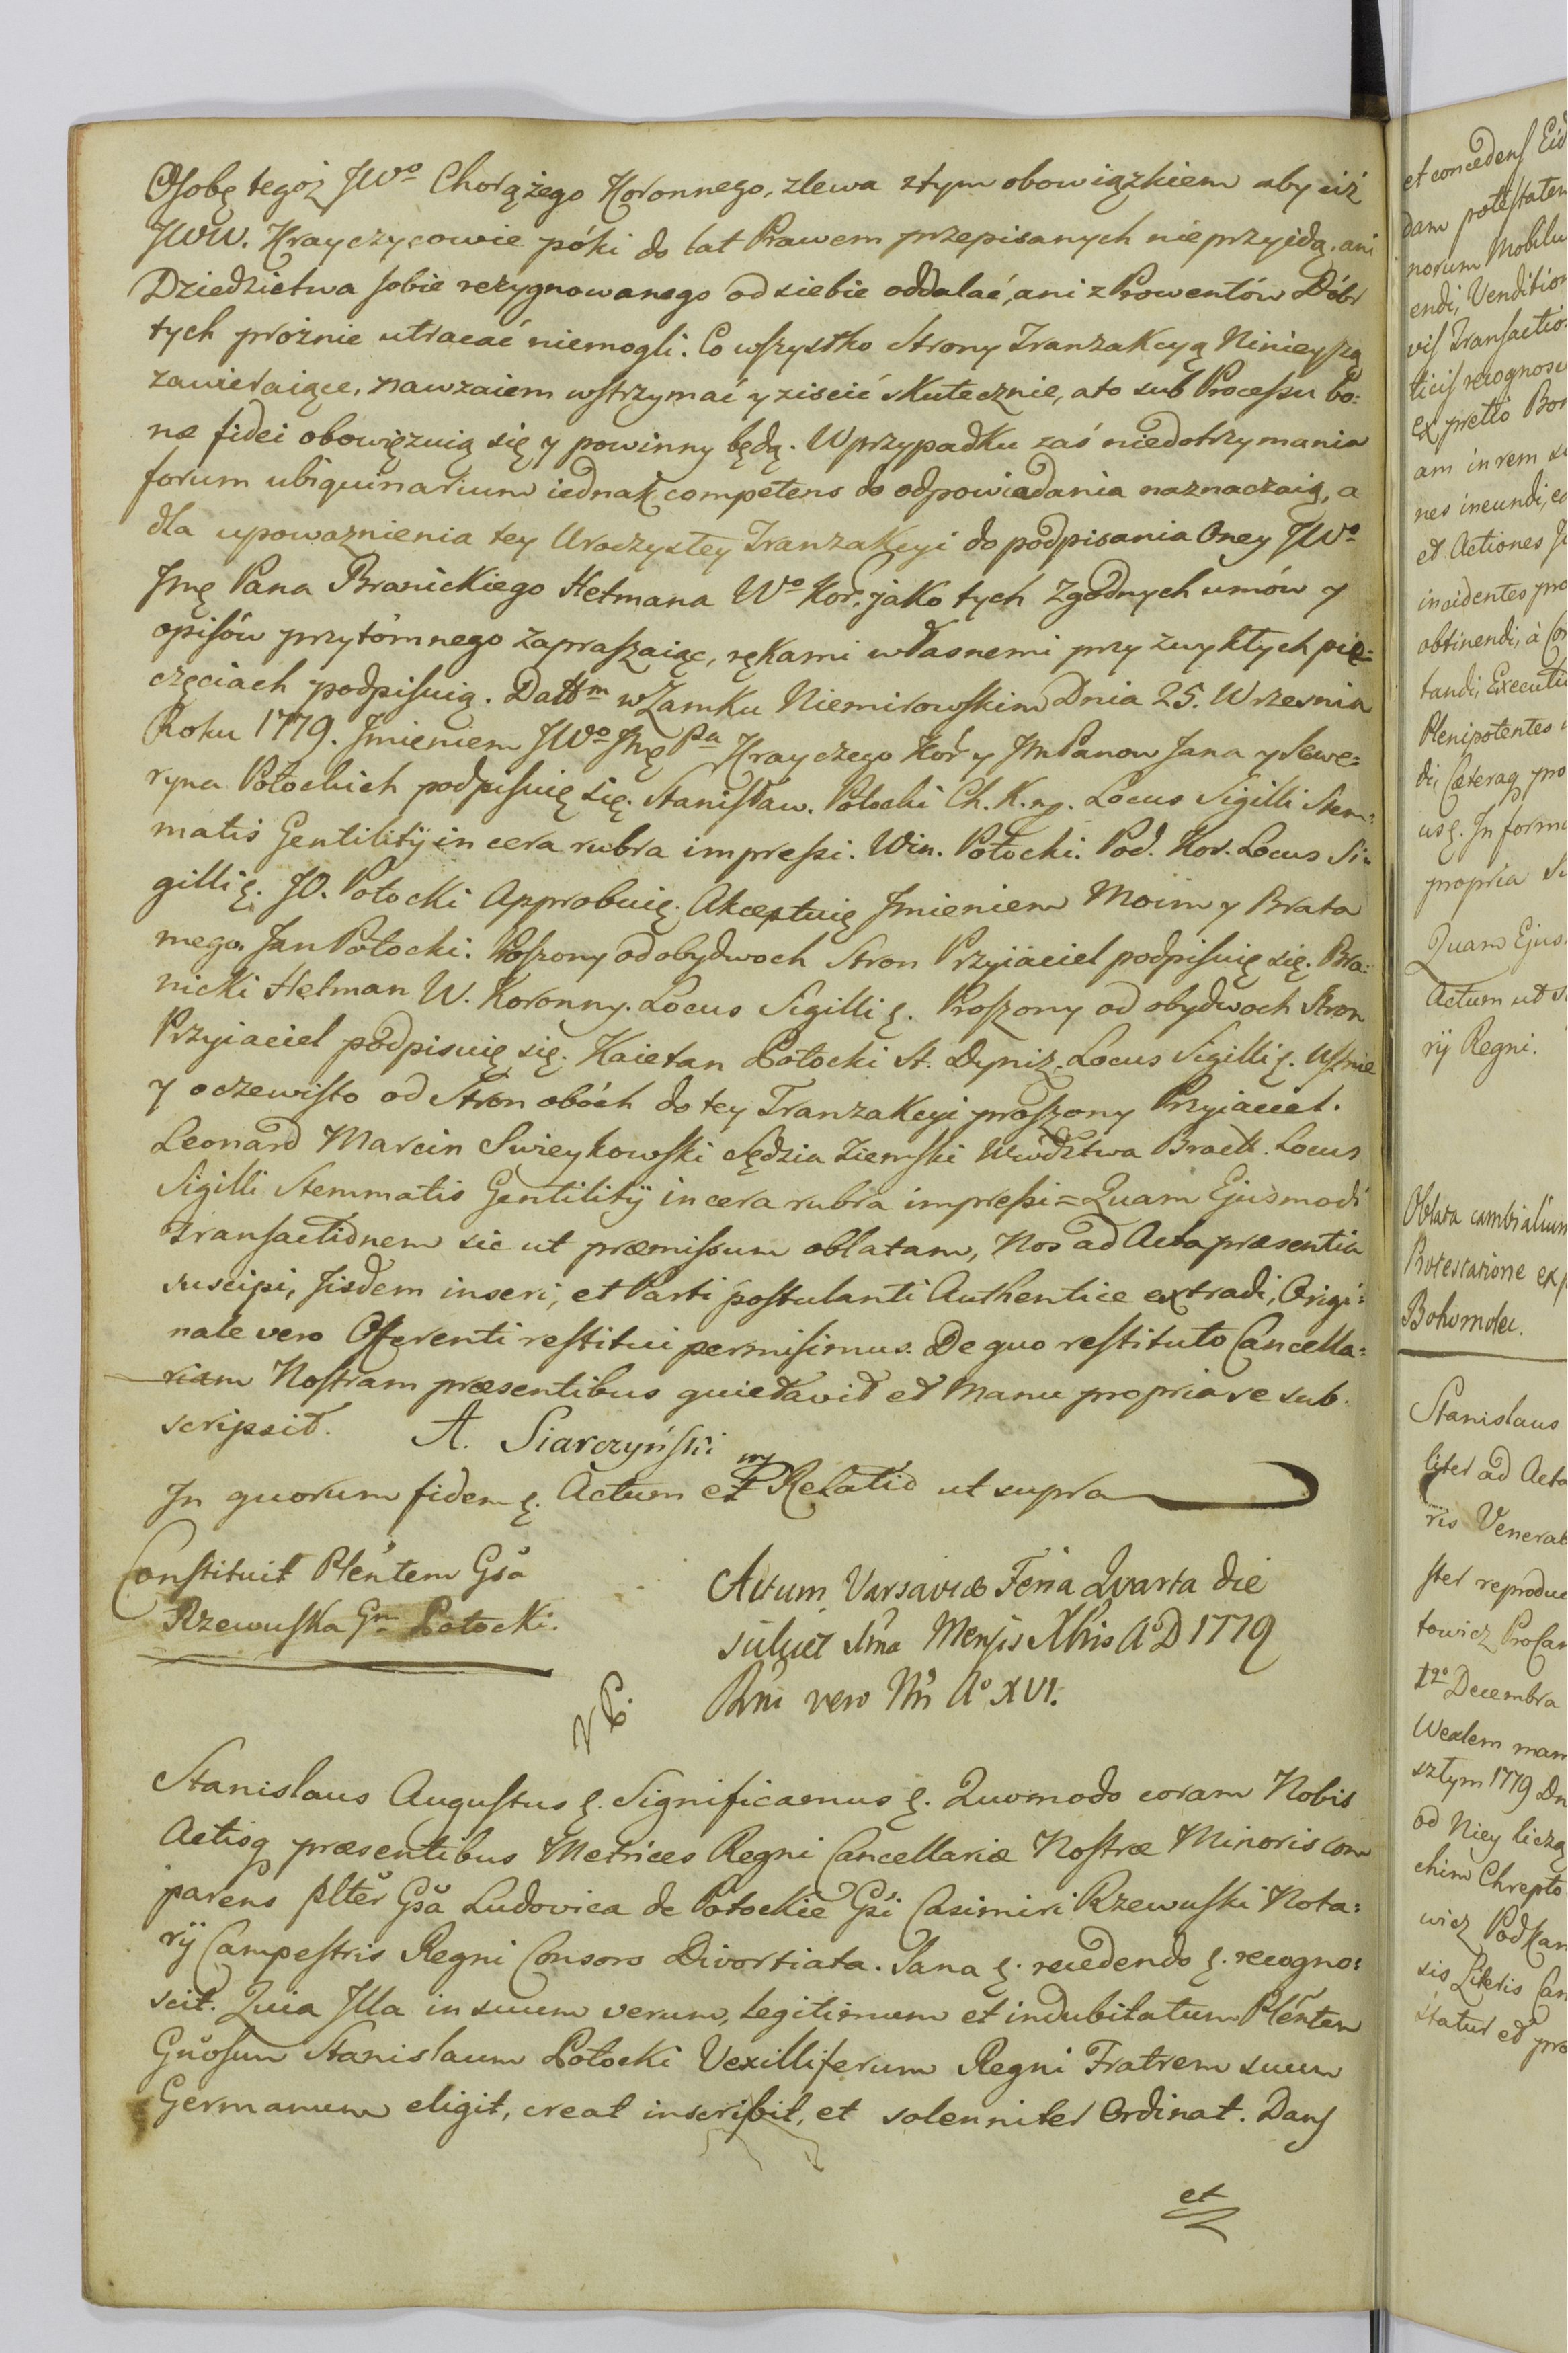 Osobę tegoż JWo Chorążego Koronnego, zlewa ztym obowiązkiem aby ciż
JWW. Krayczycowie póki do lat Prawem przepisanych nie przyidą, ani
Dziedzictwa sobie rezygnowanego od siebie oddalać, ani z Prowentów Dóbr
tych prożnie utracać niemogli. Co wszystko Strony Tranzakcyą Ninieyszą
zawieraiące, nawzaiem wstrzymać y ziścić skutecznie, a to sub Processu bo=
næ fidei obowięzuią się y powinny będą. W przypadku zaś niedotrzymania
forum ubiquinarium iednak competens do odpowiadania naznaczaią, a
dla upoważnienia tey Uroczystey Tranzakcyi do podpisania Oney JWo
Jmę Pana Branickiego Hetmana Wo Kor. jako tych Zgodnych umów y
opisów przytómnego zapraszaiąc, rękami własnemi przy zwykłych pie=
częciach podpisuią. Dattm w Zamku Niemirowskim Dnia 25. Wrzesnia
Roku 1779. Jmieniem JWo Jmę Pa Krayczego Kor y Jm Panow Jana y Sewe=
ryna Potockich podpisuię się. Stanisław. Potocki Ch. K. mp. Locus Sigilli Stem=
matis Gentilitÿ in cera rubra impressi. Win. Potocki. Pod. Kor. Locus Si=
gilli &. JO. Potocki Approbuię. Akceptuię Jmieniem Moim y Brata
mego. Jan Potocki. Proszony od obydwoch Stron Przyiaciel podpisuię się. Bra=
nicki Hetman W. Koronny. Locus Sigilli &. Proszony od obydwoch Stron
Przyiaciel podpisuię się. Kaietan Potocki St. Dyniz. Locus Sigilli &. Ustnie
y oczewisto od Stron obóch do tey Tranzakcyi proszony Przyiaciel.
Leonard Marcin Swieykowski Sędzia Ziemski Wwdztwa Bractt. Locus
Sigilli Stemmatis Gentilitÿ in cera rubra impressi = Quam Ejusmodi
Transactionem sic ut præmissum oblatam, Nos ad Acta præsentia
suscipi, Jisdem inseri, et Parti postulanti Authentice extradi, Origi=
nale vero Offerenti restitui permisimus. De quo restituto Cancella=
riam Nostram præsentibus quietavit et Manu propria se sub=
scripsit. A. Siarczyński mp
In quorum fidem &. Actum et Relatio ut supra
Constituit Plentem Gsa
Rzewuska Gn Potocki.
Actum Varsaviæ Feria Quarta die
scilicet 1ma Mensis Xbris Ao D 1779
Rni vero Nri Ao XVI.
Stanislaus Augustus &. Significamus &. Quomodo coram Nobis
Actisq præsentibus Metrices Regni Cancellariæ Nostræ Minoris com
parens Plter Gsa Ludovica de Potockie Gsi Casimiri Rzewuski Nota=
rÿ Campestris Regni Consors Divortiata. Sana &. recedendo &. recogno=
scit. Quia Illa in suum verum, legitimum et indubitatum Plentem
Gnosum Stanislaum Potocki Vexilliferum Regni Fratrem suum
Germanum eligit, creat inscribit, et solenniter Ordinat. Dans
et
et concedens Eid
dam potestatem
norum Mobiliu
endi, Vendition
vis Transaction
ticis recognosc
ex pretio Bon
am in rem su
nes ineundi, ea
et Actiones J
incidentes pro
obtinendi, à Con
tandi, Executi
Plenipotentes
di, Cæteraq pro
us &. In forma
propria Su
Quam Ejus
Actum ut s
rÿ Regni.
Oblata cambialium
Protestatione ex p
Bohomolec.
Stanislaus
liter ad Acta
ris Venerab
ster reprodu
towicz ProCan
12o Decembra
Wexlem mam
sztym 1779 Dn
od Niey licza
chim Chrepto
wicz PodKan
sis Literis Can
statur et pro